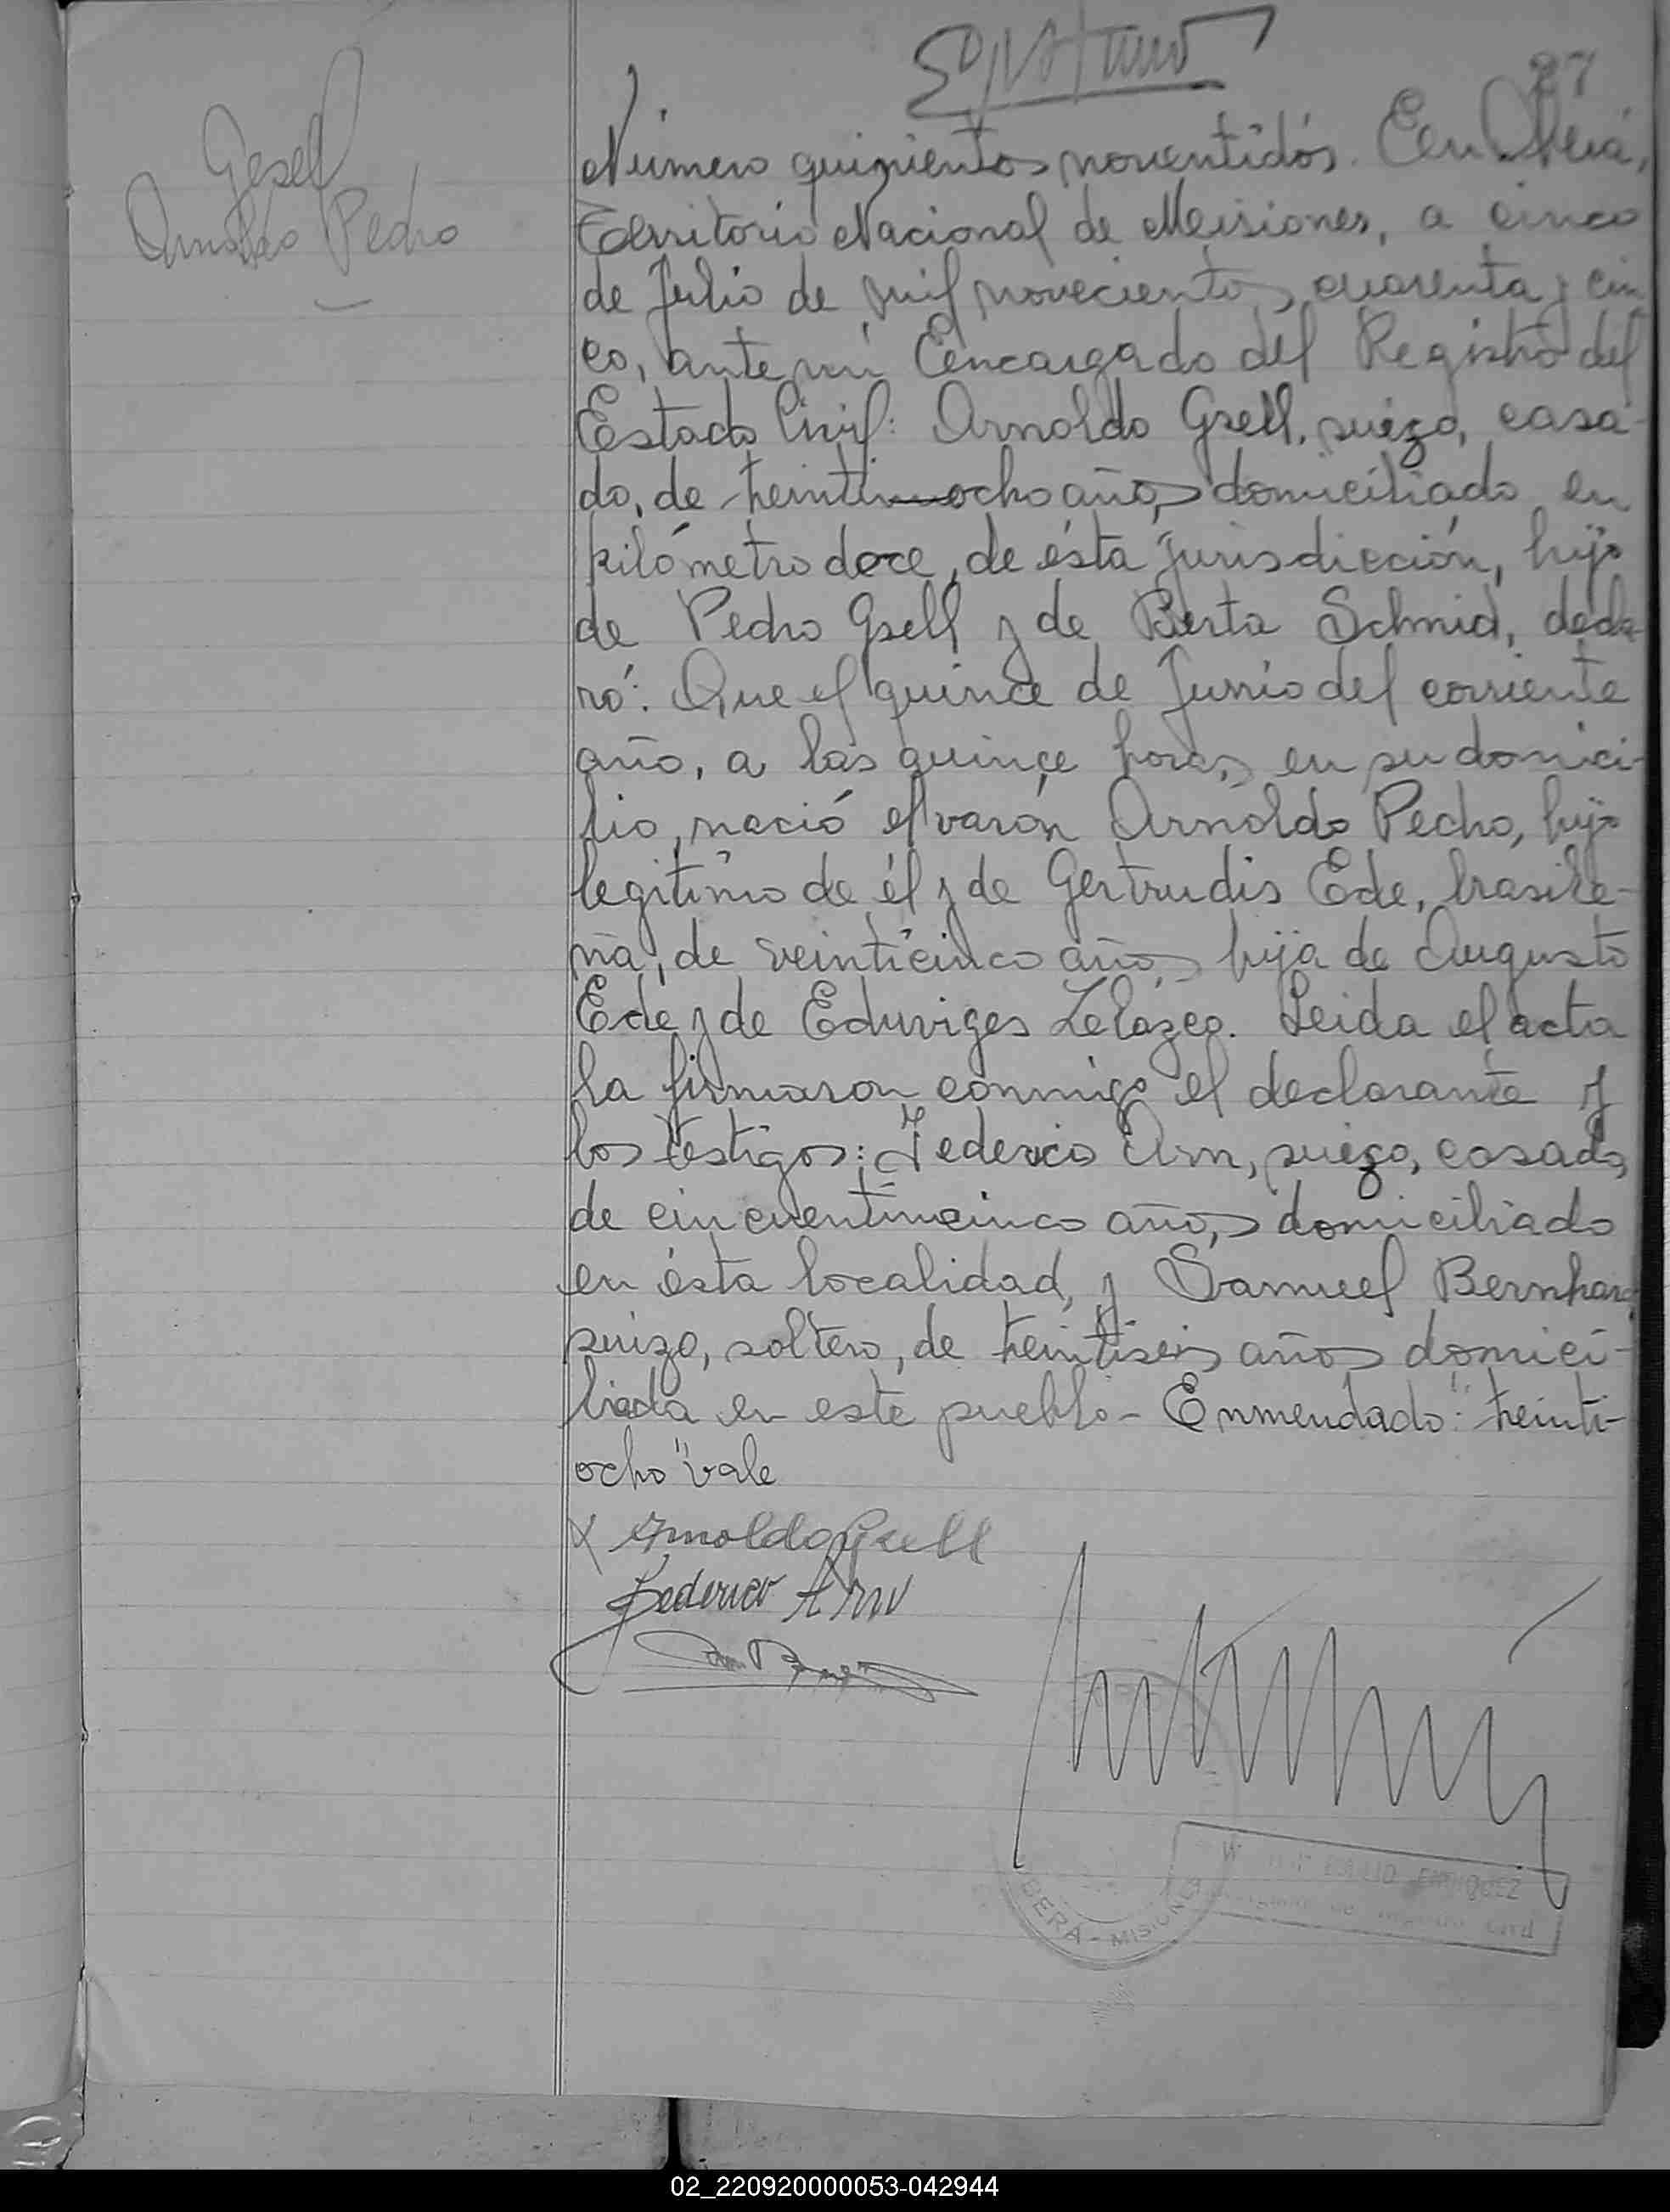 27
Gesell
Arnoldo Pedro
Número quinientos noventidós. En Oberá,
Territorio Nacional de Misiones, a cinco
de Julio de mil novecientos cuarenta y cin
co, ante mí Encargado del Registro del
Estado Civil: Arnoldo Gsell, suizo, casa-
do, de treintiocho años, domiciliado en
kilómetro doce, de ésta jurisdicción, hijo
de Pedro Gsell y de Berta Schmid, decla-
ró: Que el quince de Junio del corriente
año, a las quince horas, en su domici-
lio, nació el varón Arnoldo Pedro, hijo
legítimo de él y de Gertrudis Ede, brasile-
ña, de veinticinco años, hija de Augusto
Ede y de Eduviges. Leida el acta
la firmaron conmigo el declarante y
los testigos: Federico Arn, suizo, casado,
de cincuenticinco años, domiciliado
en ésta localidad, y Samuel Bernhard
suizo, soltero, de treintiseis años domici-
liada en este pueblo - Enmendado: "treinti-
ocho" vale
x Arnoldo Gsell
Federico Arn
OBERA - MISIONES
02_220920000053-042944